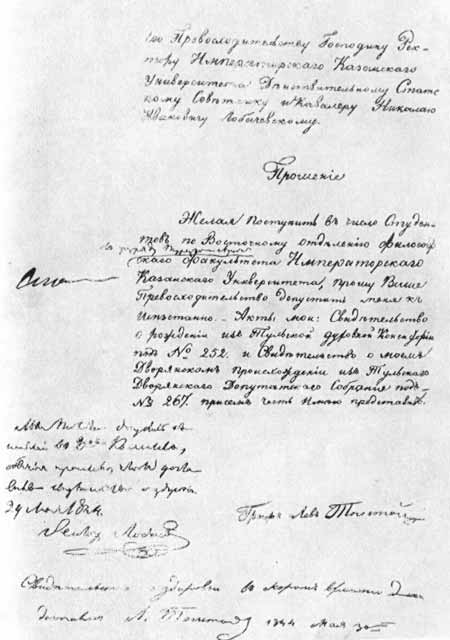 Его Превосходительству Господину Рек-
тору Императорскаго Казанскаго
Университета Действительному Статс
кому Советнику и Кавалеру Николаю
Ивановичу Лобачевскому.
Прошеніе
Желая поступить въ число Студен-
товъ по Восточному отделенію философ
въ разрядъ
скаго факультета Императорскаго
Казанскаго Университета, прошу Ваше
Превосходительство допустить меня къ
испытанію. - Акты мои: Свидетельство
о рожденіи изъ Тульской духовной Консисторіи
подъ № 252. и Свидетельство о моемъ
Дворянскомъ происхожденіи изъ Тульскаго
Дворянскаго Депутатскаго Собранія подъ
№ 267. присемъ честь имею представить.
29 Мая 1844.
Графъ Левъ Толстой
Свидетельство о здоровьи въ скоромъ времени
доставлю Л. Толстой 1844 мая 30